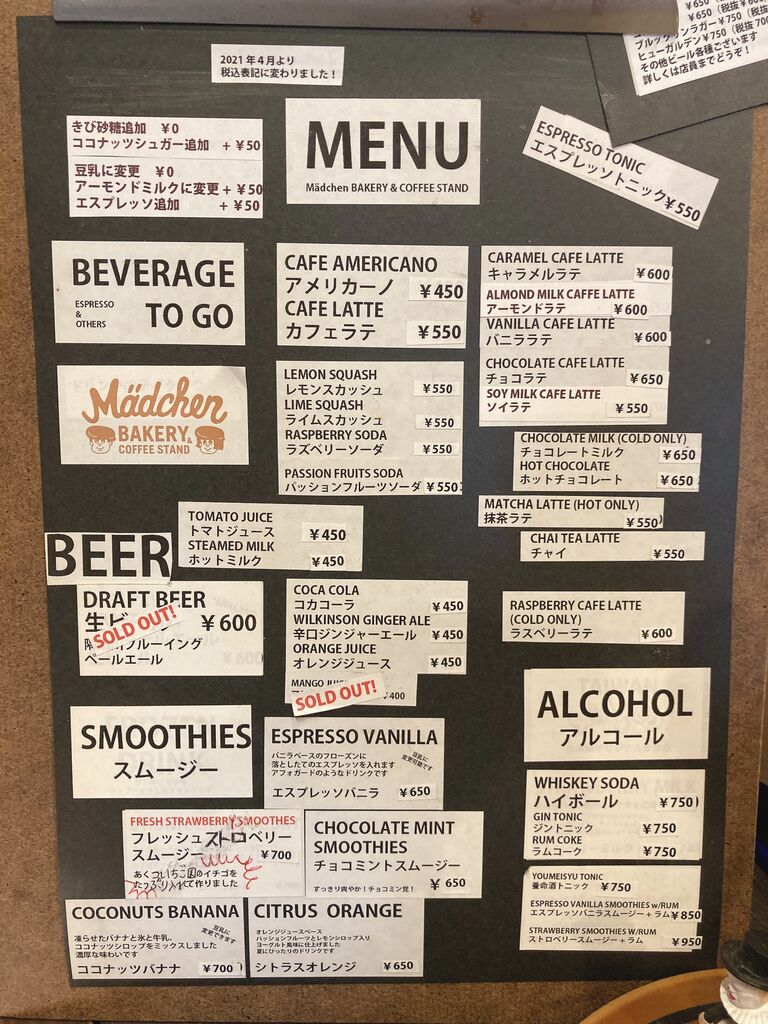 ¥650 (税抜
¥650 (税抜
¥750 (税抜
ヒューガルデン ¥750 (税抜 70
その他ビール各種ございます
詳しくは店員までどうぞ!
2021年4月より
税込表記に変わりました!
きび砂糖追加 ¥0
ココナッツシュガー追加 +¥50
豆乳に変更 ¥0
アーモンドミルクに変更 +¥50
エスプレッソ追加 +¥50
MENU
Mädchen BAKERY & COFFEE STAND
ESPRESSO TONIC
エスプレッソトニック ¥550
BEVERAGE
ESPRESSO
&
OTHERS
TO GO
CAFE AMERICANO
アメリカーノ ¥450
CAFE LATTE
カフェラテ ¥550
CARAMEL CAFE LATTE
キャラメルラテ ¥600
ALMOND MILK CAFFE LATTE
アーモンドラテ ¥600
VANILLA CAFE LATTE
バニララテ ¥600
CHOCOLATE CAFE LATTE
チョコラテ ¥650
SOY MILK CAFE LATTE
ソイラテ ¥550
Mädchen
BAKERY &
COFFEE STAND
LEMON SQUASH
レモンスカッシュ ¥550
LIME SQUASH
ライムスカッシュ ¥550
RASPBERRY SODA
ラズベリーソーダ ¥550
PASSION FRUITS SODA
パッションフルーツソーダ ¥550
CHOCOLATE MILK (COLD ONLY)
チョコレートミルク ¥650
HOT CHOCOLATE
ホットチョコレート ¥650
MATCHA LATTE (HOT ONLY)
抹茶ラテ ¥550
CHAI TEA LATTE
チャイ ¥550
TOMATO JUICE
トマトジュース ¥450
STEAMED MILK
ホットミルク ¥450
BEER
DRAFT BEER
生ビ ¥600
SOLD OUT!
ブルーイング
ペールエール
COCA COLA
コカコーラ ¥450
WILKINSON GINGER ALE
辛口ジンジャーエール ¥450
ORANGE JUICE
オレンジジュース ¥450
MANGO
¥400
SOLD OUT!
RASPBERRY CAFE LATTE
(COLD ONLY)
ラズベリーラテ ¥600
SMOOTHIES
スムージー
ESPRESSO VANILLA
バニラベースのフローズンに
落としたてのエスプレッソを入れます
アフォガードのようなドリンクです
豆乳に
変更可能です
エスプレッソバニラ ¥650
ALCOHOL
アルコール
WHISKEY SODA
ハイボール ¥750
GIN TONIC
ジントニック ¥750
RUM COKE
ラムコーク ¥750
FRESH STRAWBERRY SMOOTHES
フレッシュストロベリー
スムージー ¥700
いちご園のイチゴを
たっぷり入れて作りました
CHOCOLATE MINT
SMOOTHIES
チョコミントスムージー
すっきり爽やか!チョコミン党! ¥650
YOUMEISYU TONIC
養命酒トニック ¥750
ESPRESSO VANILLA SMOOTHIES w/RUM
エスプレッソバニラスムージー+ラム ¥850
STRAWBERRY SMOOTHIES W/RUM
ストロベリースムージー+ラム ¥950
COCONUTS BANANA
凍らせたバナナと氷と牛乳、
ココナッツシロップをミックスしました
濃厚な味わいです
豆乳に
変更できます
ココナッツバナナ ¥700
CITRUS ORANGE
オレンジジュースベース
パッションフルーツとレモンシロップ入り
ヨーグルト風味に仕上げました
夏にぴったりのドリンクです
シトラスオレンジ ¥650